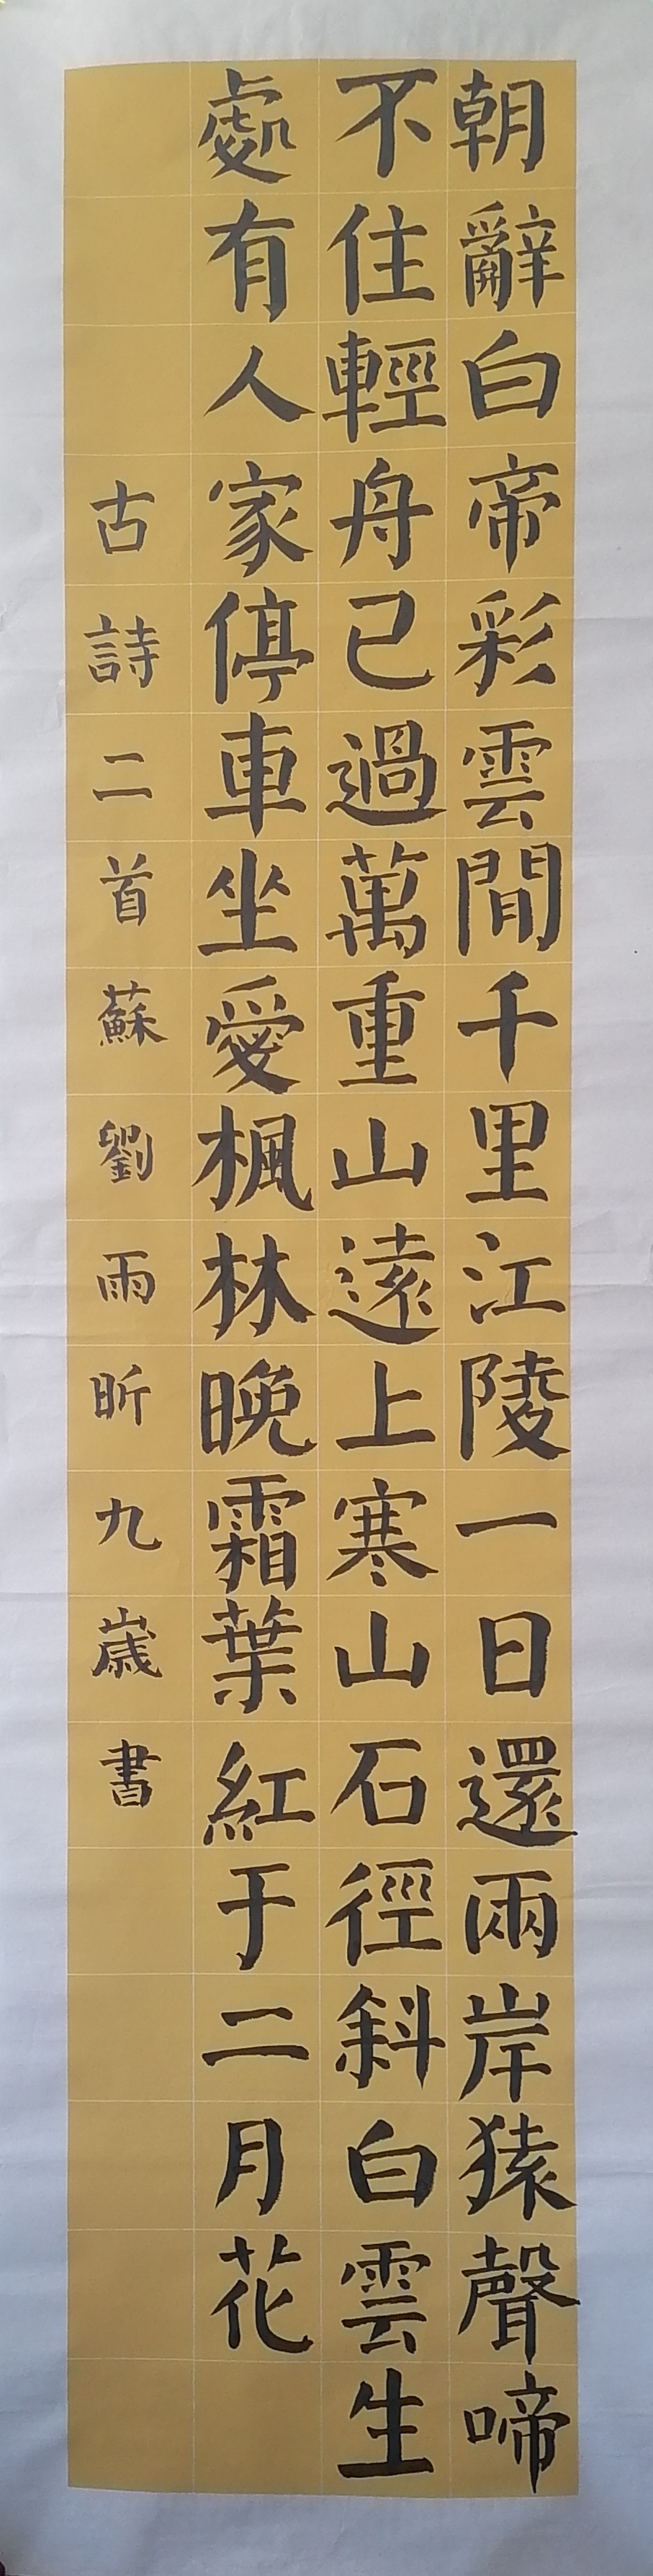 朝辭白帝彩雲間千里江陵一日還兩岸猿聲啼
不住輕舟已過萬重山遠上寒山石徑斜白雲生
處有人家停車坐愛楓林晚霜葉紅于二月花
古詩二首蘇劉雨昕九歲書